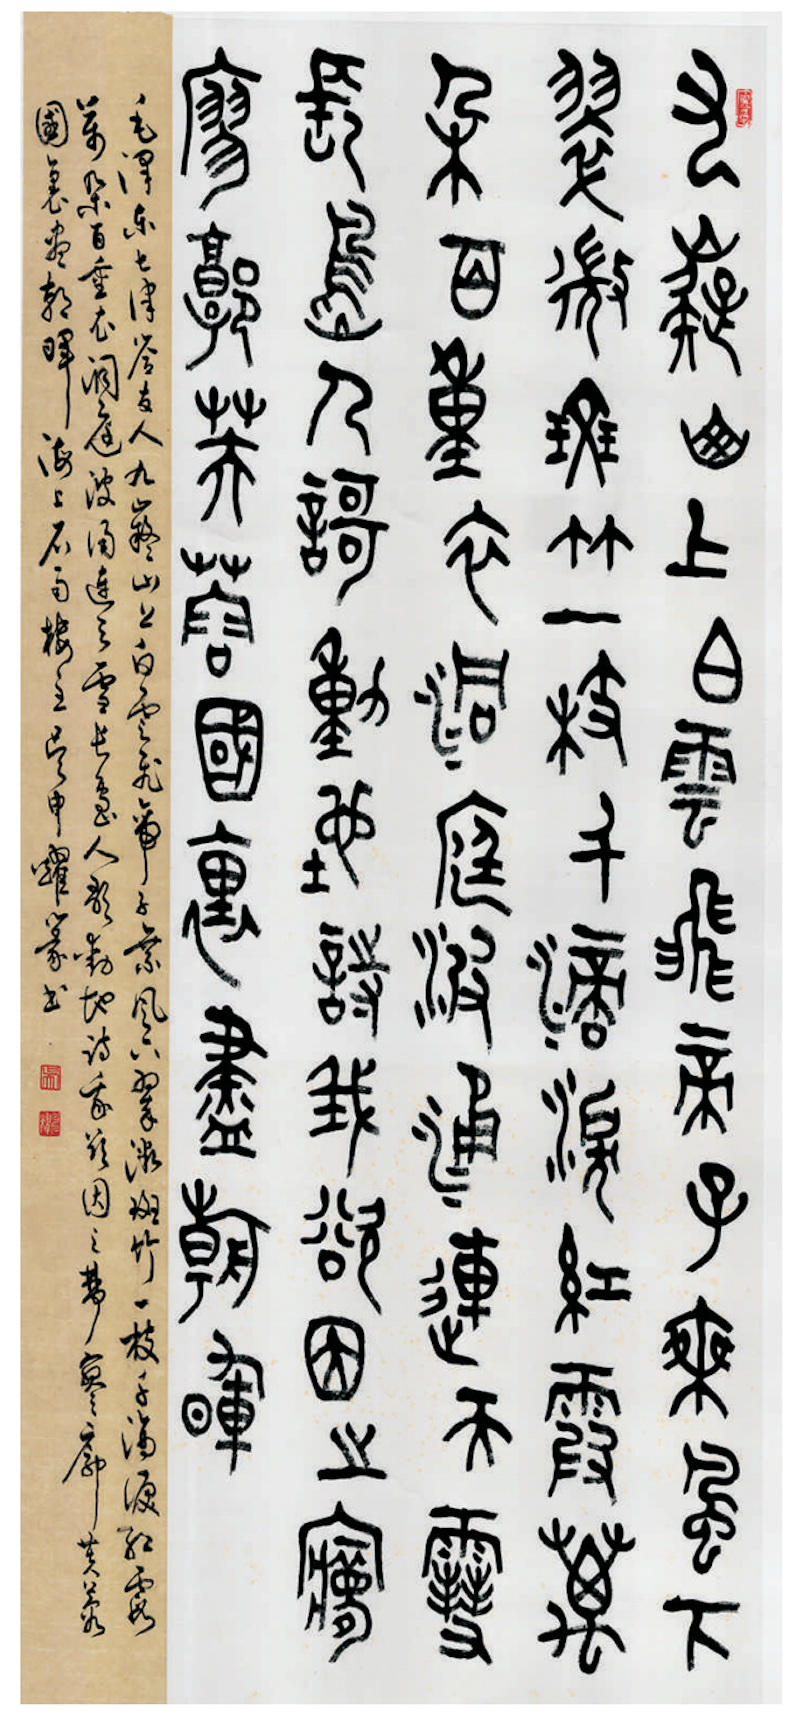 九嶷山上白雲飛帝子乘風下
翠微斑竹一枝千滴淚紅霞萬
朵百重衣洞庭波涌連天雪
長島人謌動地詩我欲因之夢
寥廓芙蓉國裏盡朝暉
毛澤東七律答友人九嶷山上白雲飛帝子乘風下翠微斑竹一枝千滴淚紅霞
萬朵百重衣洞庭波涌連天雪長島人歌動地詩我欲因之夢寥廓芙蓉
國裏盡朝暉 海上石樓主吳申耀篆書